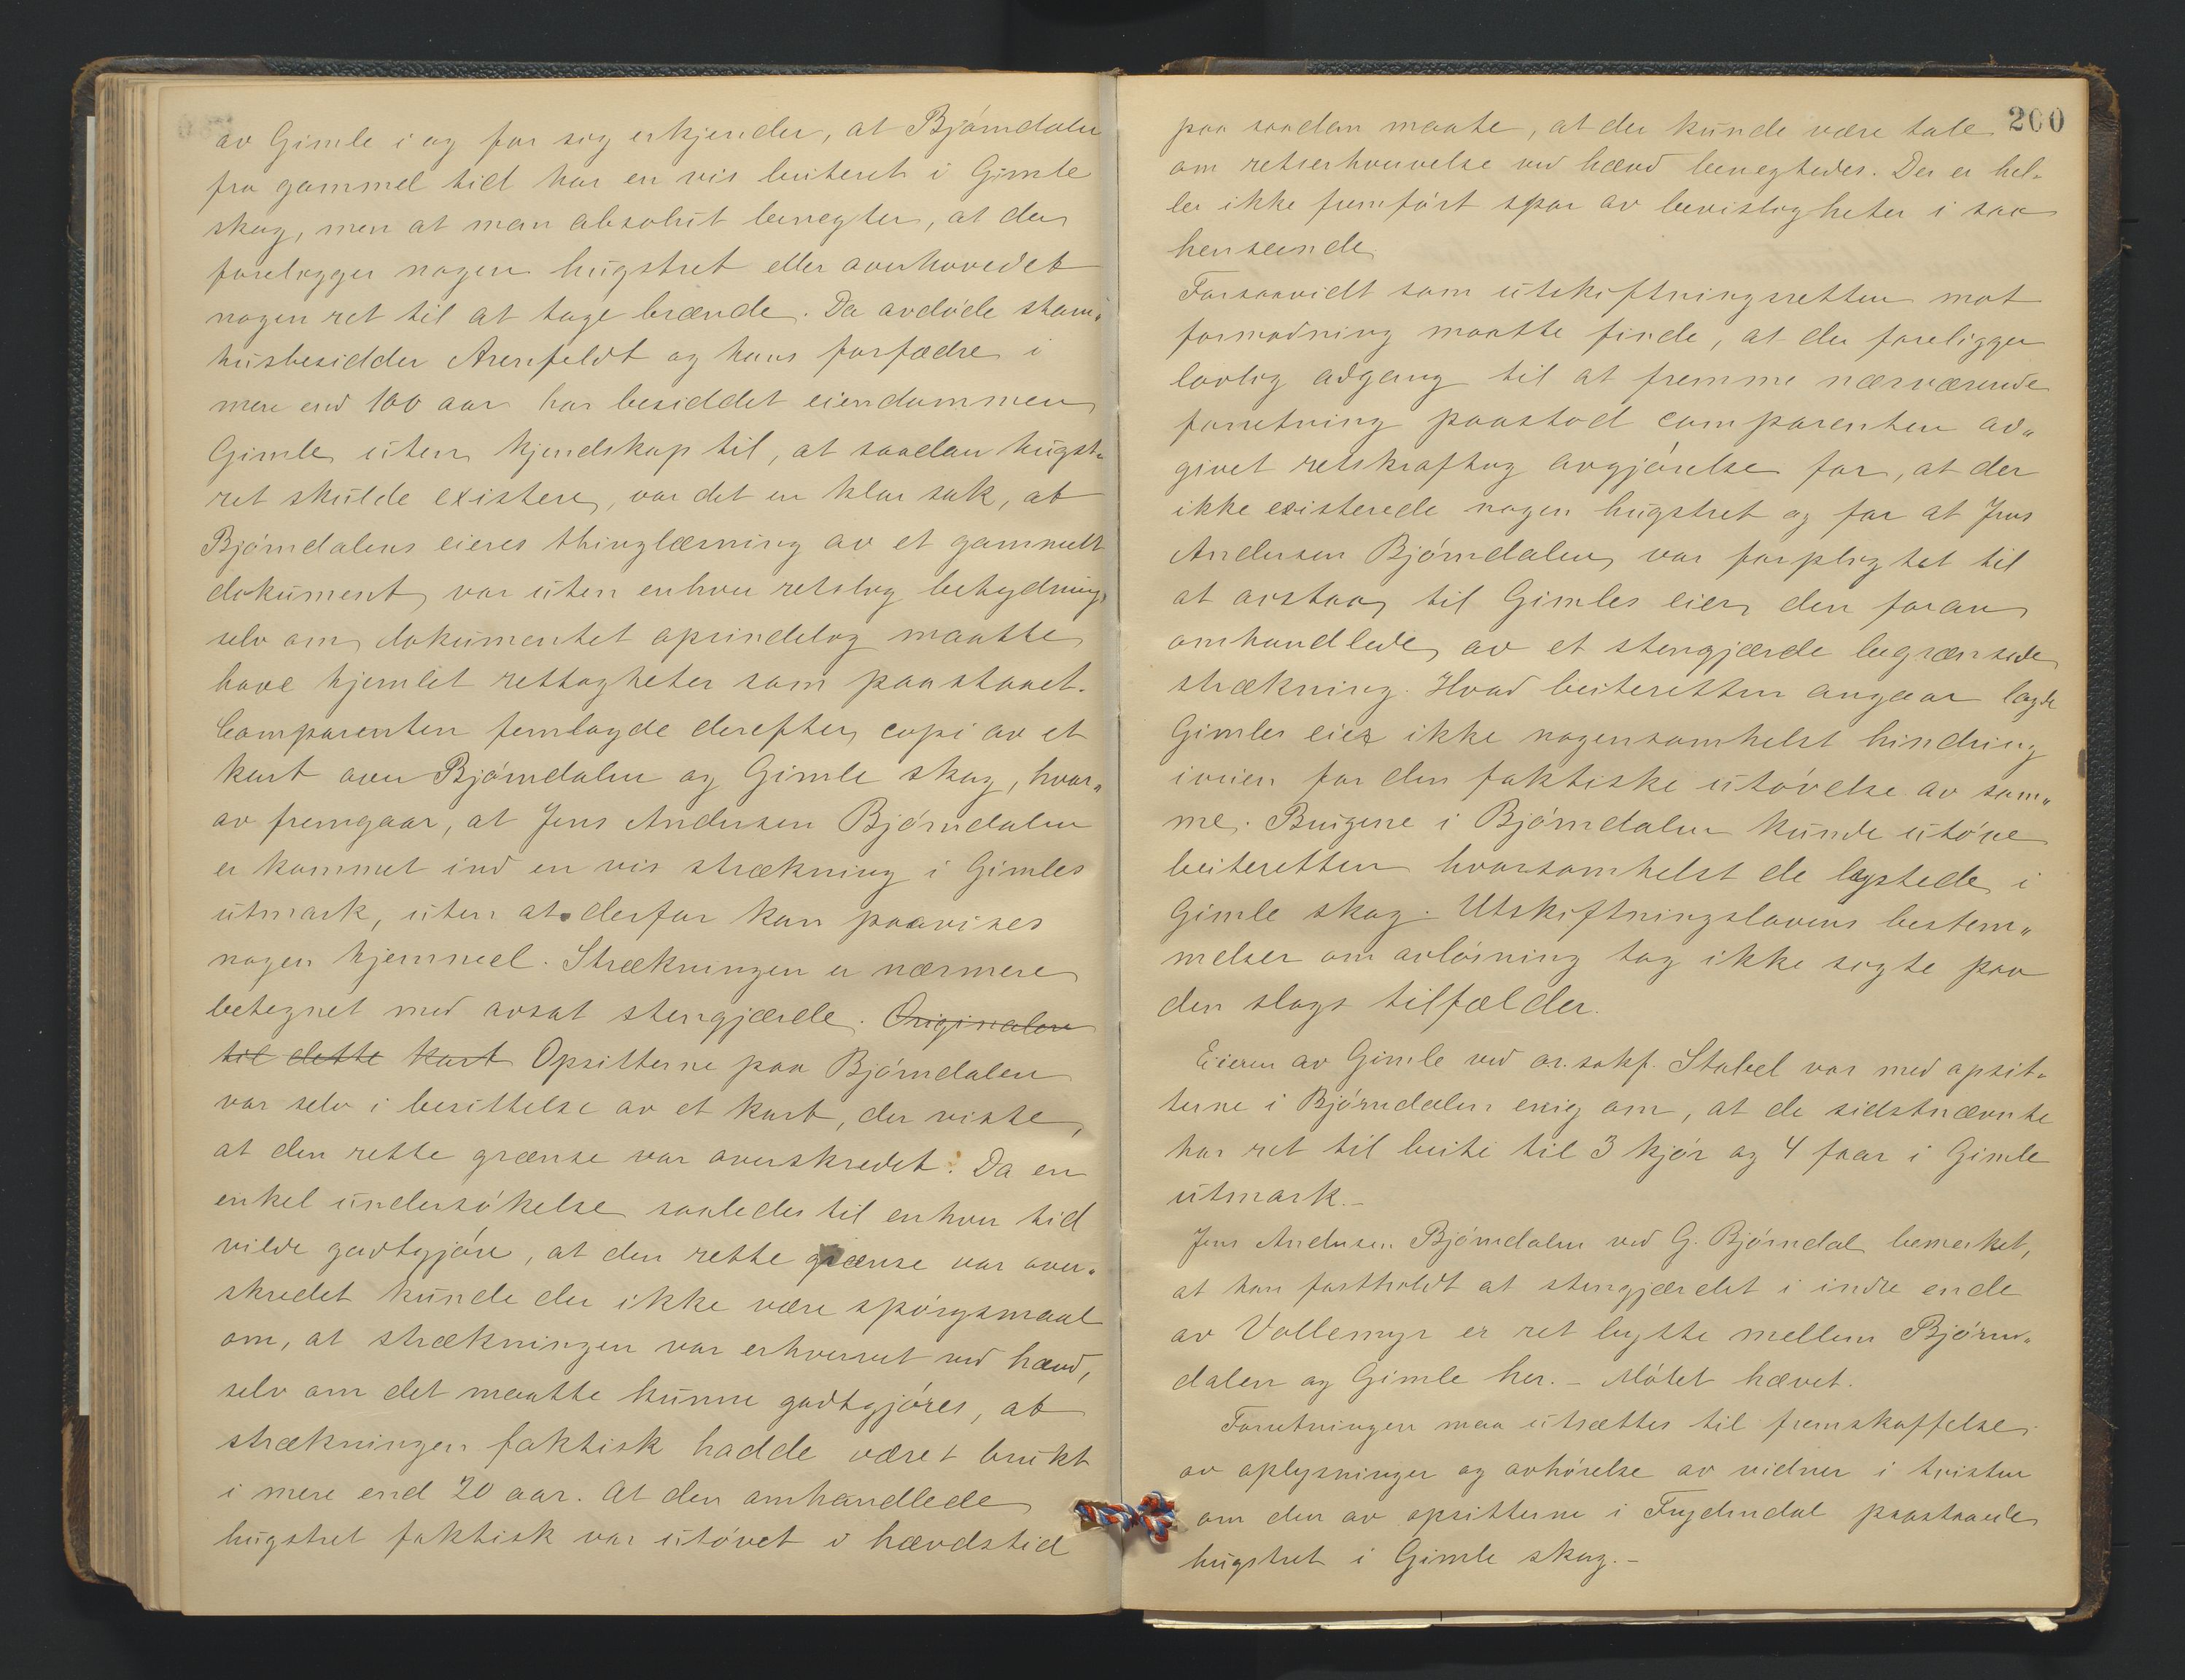 av Gimle i og for sig erkjender, at Bjørndalen
fra gammel tid har en vis beiteret i Gimle
skog, men at man absolut benegter, at der
forelygger nogen hugstret eller overhovedet
nogen ret til at tage brænde. Da avdøde stam-
husbesidder Arenfeldt og hans forfædre i
mere end 100 aar har besiddet eiendommen
Gimle uten kjendskap til, at saadan hugst-
ret skulde existere, var det en klar sak, at
Bjørndalens eieres thinglæsning av et gammelt
dokument var uten enhver retslig betydning,
selv om dokumentet oprindelig maatte
have hjemlet rettigheter som paastaaet.
Comparenten fremlagde derefter copi av et
kart over Bjørndalen og Gimle skog, hvor-
av fremgaar, at Jens Andersen Bjørndalen
er kommet ind en vis strækning i Gimles
utmark, uten at derfor kan paavises
nogen hjemmel. Strækningen er nærmere
betegnet med avsat stengjærde. Originalen
til dette kart Opsitterne paa Bjørndalen
var selv i besittelse av et kart, der viste,
at den rette grænse var overskredet. Da en
enkel undersøkelse saaledes til enhver tid
vilde godtgjøre, at den rette grænse var over-
skredet kunde der ikke være spørgsmaal
om, at strækningen var erhvervet ved hævd,
selv om det maatte kunne godtgjøres, at
strækningen faktisk hadde været brukt
i mere end 20 aar. At den omhandlede
hugstret faktisk var utøvet i hævdstid
200
paa saadan maate, at der kunde være tale
om retserhvervelse ved hævd benegtedes. Der er hel-
ler ikke fremført spor av bevisligheter i saa
henseende.
Forsaavidt som utskiftningsretten mot
formodning maatte finde, at der foreligger
lovlig adgang til at fremme nærværende
forretning paastod comparenten av-
givet retskraftig avgjørelse for, at der
ikke existerede nogen hugstret og for at Jens
Andersen Bjørndalen var forpligtet til
at avstaa til Gimles eier den foran
omhandlede, av et stengjærde begrænsede
strækning. Hvad beiteretten angaar lagde
Gimles eier ikke nogensomhelst hindring
iveien for den faktiske utøvelse av sam-
me. Brugene i Bjørndalen kunde utøve
beiteretten hvorsomhelst de lystede i
Gimle skog. Utskiftningslovens bestem-
melser om avløsning tog ikke sigte paa
den slags tilfælder.
Eieren av Gimle ved o.r.sakf. Stabel var med opsit-
terne i Bjørndalen enig om, at de sidstnævnte
har ret til beite til 3 kjør og 4 faar i Gimle
utmark.-
Jens Andersen Bjørndalen ved G. Bjørndal bemerket,
at han fastholdt at stengjærdet i indre ende
av Vollemyr er ret bytte mellem Bjørn-
dalen og Gimle her. - Møtet hævet.
Forretningen maa utsættes til fremskaffelse
av oplysninger og avhørelse av vidner i tvisten
om den av opsitterne i paastaaede
hugstret i Gimle skog.-